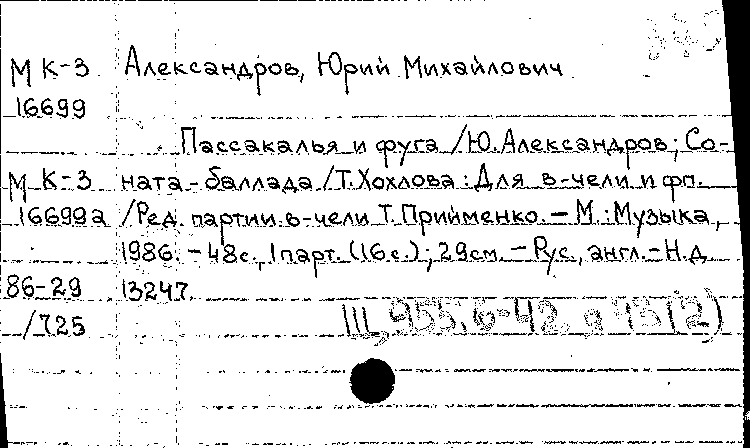 345
М К-3 Александров, Юрий Михайлович
16699
Пассакалья и фуга /Ю.Александров; Со-
М К-3 ната-баллада /Т.Хохлова: Для в-чели и фп.
16699а /Ред. партии в-чели Т.Прийменко. — М.: Музыка,
1986. — 48с., 1парт. (16с.); 29см. — Рус., англ. — Н.д.
86-29 13247.
/725 Щ,955.6-42, я 43(2)